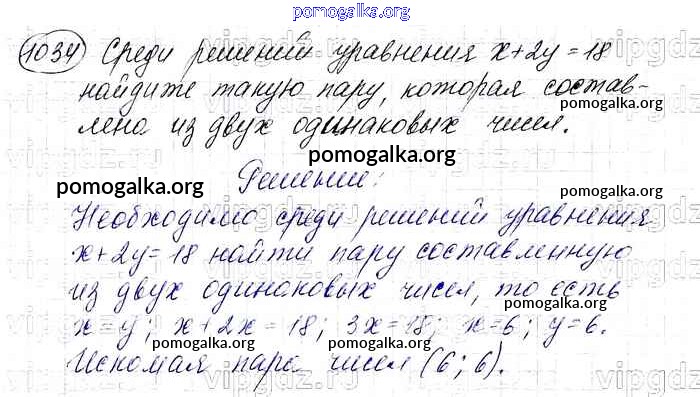 pomogalka.org
1034 Среди решений уравнения x+2y=18
найдите такую пару, которая состав-
pomogalka.org pomogalka.org
лена из двух одинаковых чисел.
pomogalka.org
Решение:
pomogalka.org pomogalka.org
Необходимо среди решений уравнения
x+2y=18 найти пару составленную
из двух одинаковых чисел, то есть
x=y; x+2x=18; 3x=18; x=6; y=6.
pomogalka.org pomogalka.org
Искомая пара чисел (6; 6).